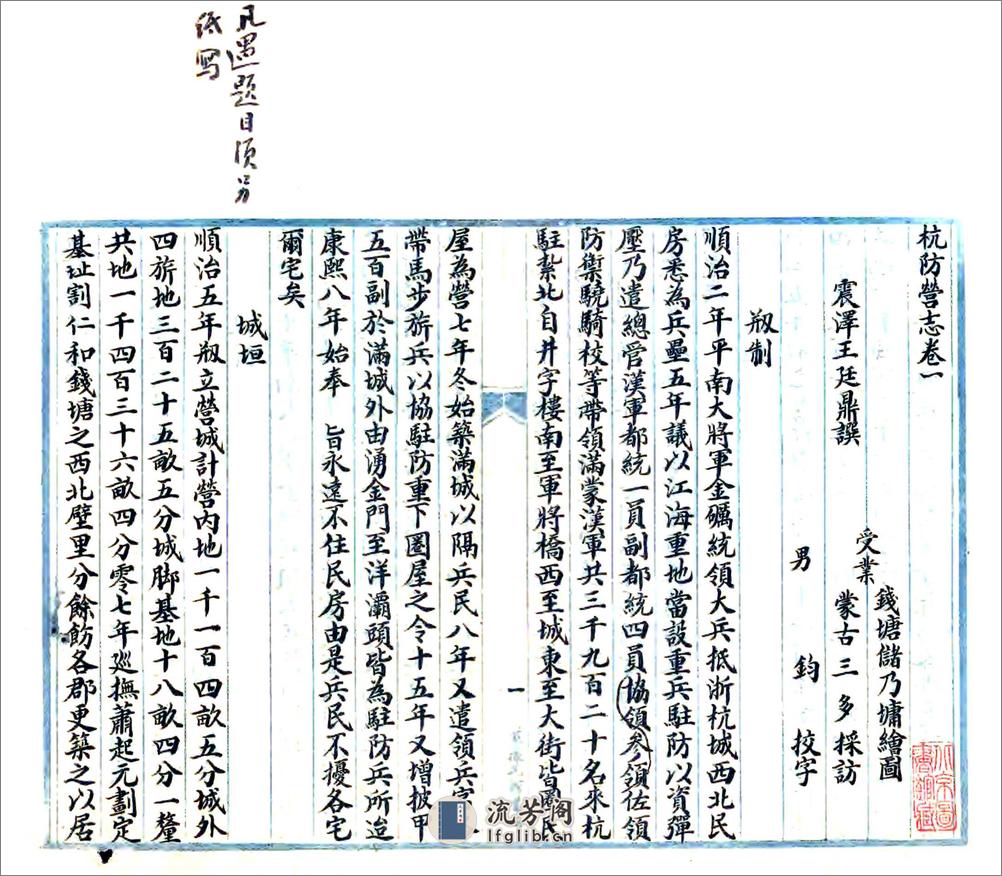 凡遇题目须另
紙写
杭防營志卷一
震澤王廷鼎譔
受業
錢塘儲乃墉繪圖
蒙古三多採訪
男 鈞 校字
剏制
順治二年平南大將軍金礪統領大兵抵浙杭城西北民
房悉為兵壘五年議以江海重地當設重兵駐防以資彈
壓乃遣總管漢軍都統一員副都統四員協領參領佐領
防禦驍騎校等帶領滿蒙漢軍共三千九百二十名來杭
駐紮北自井字樓南至軍將橋西至城東至大街皆圈民
一
屋為營七年冬始築滿城以隔兵民八年又遣領兵
帶馬步旂兵以協駐防重下圈屋之令十五年又增披甲
五百副於滿城外由湧金門至洋灞頭皆為駐防兵所造
康熙八年始奉 旨永遠不住民房由是兵民不擾各宅
爾宅矣
城垣
順治五年剏立營城計營內地一千一百四畝五分城外
四旂地三百二十五畝五分城脚基地十八畝四分一釐
共地一千四百三十六畝四分零七年巡撫蕭起元劃定
基址割仁和錢塘之西北壁里分餘飭各郡更築之以居
流芳阁
lfglib.cn